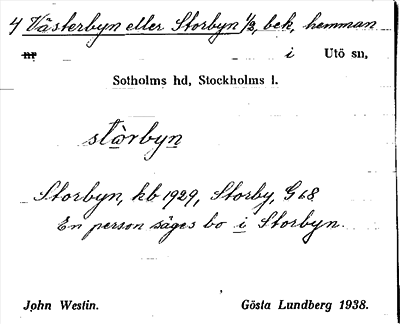 4 Västerbyn eller Storbyn 1/2, bek, hemman
nr i Utö sn,
Sotholms hd, Stockholms l.
stòrbyn
Storbyn, kb 1929, Storby, G 68
En person säges bo i Storbyn.
John Westin. Gösta Lundberg 1938.